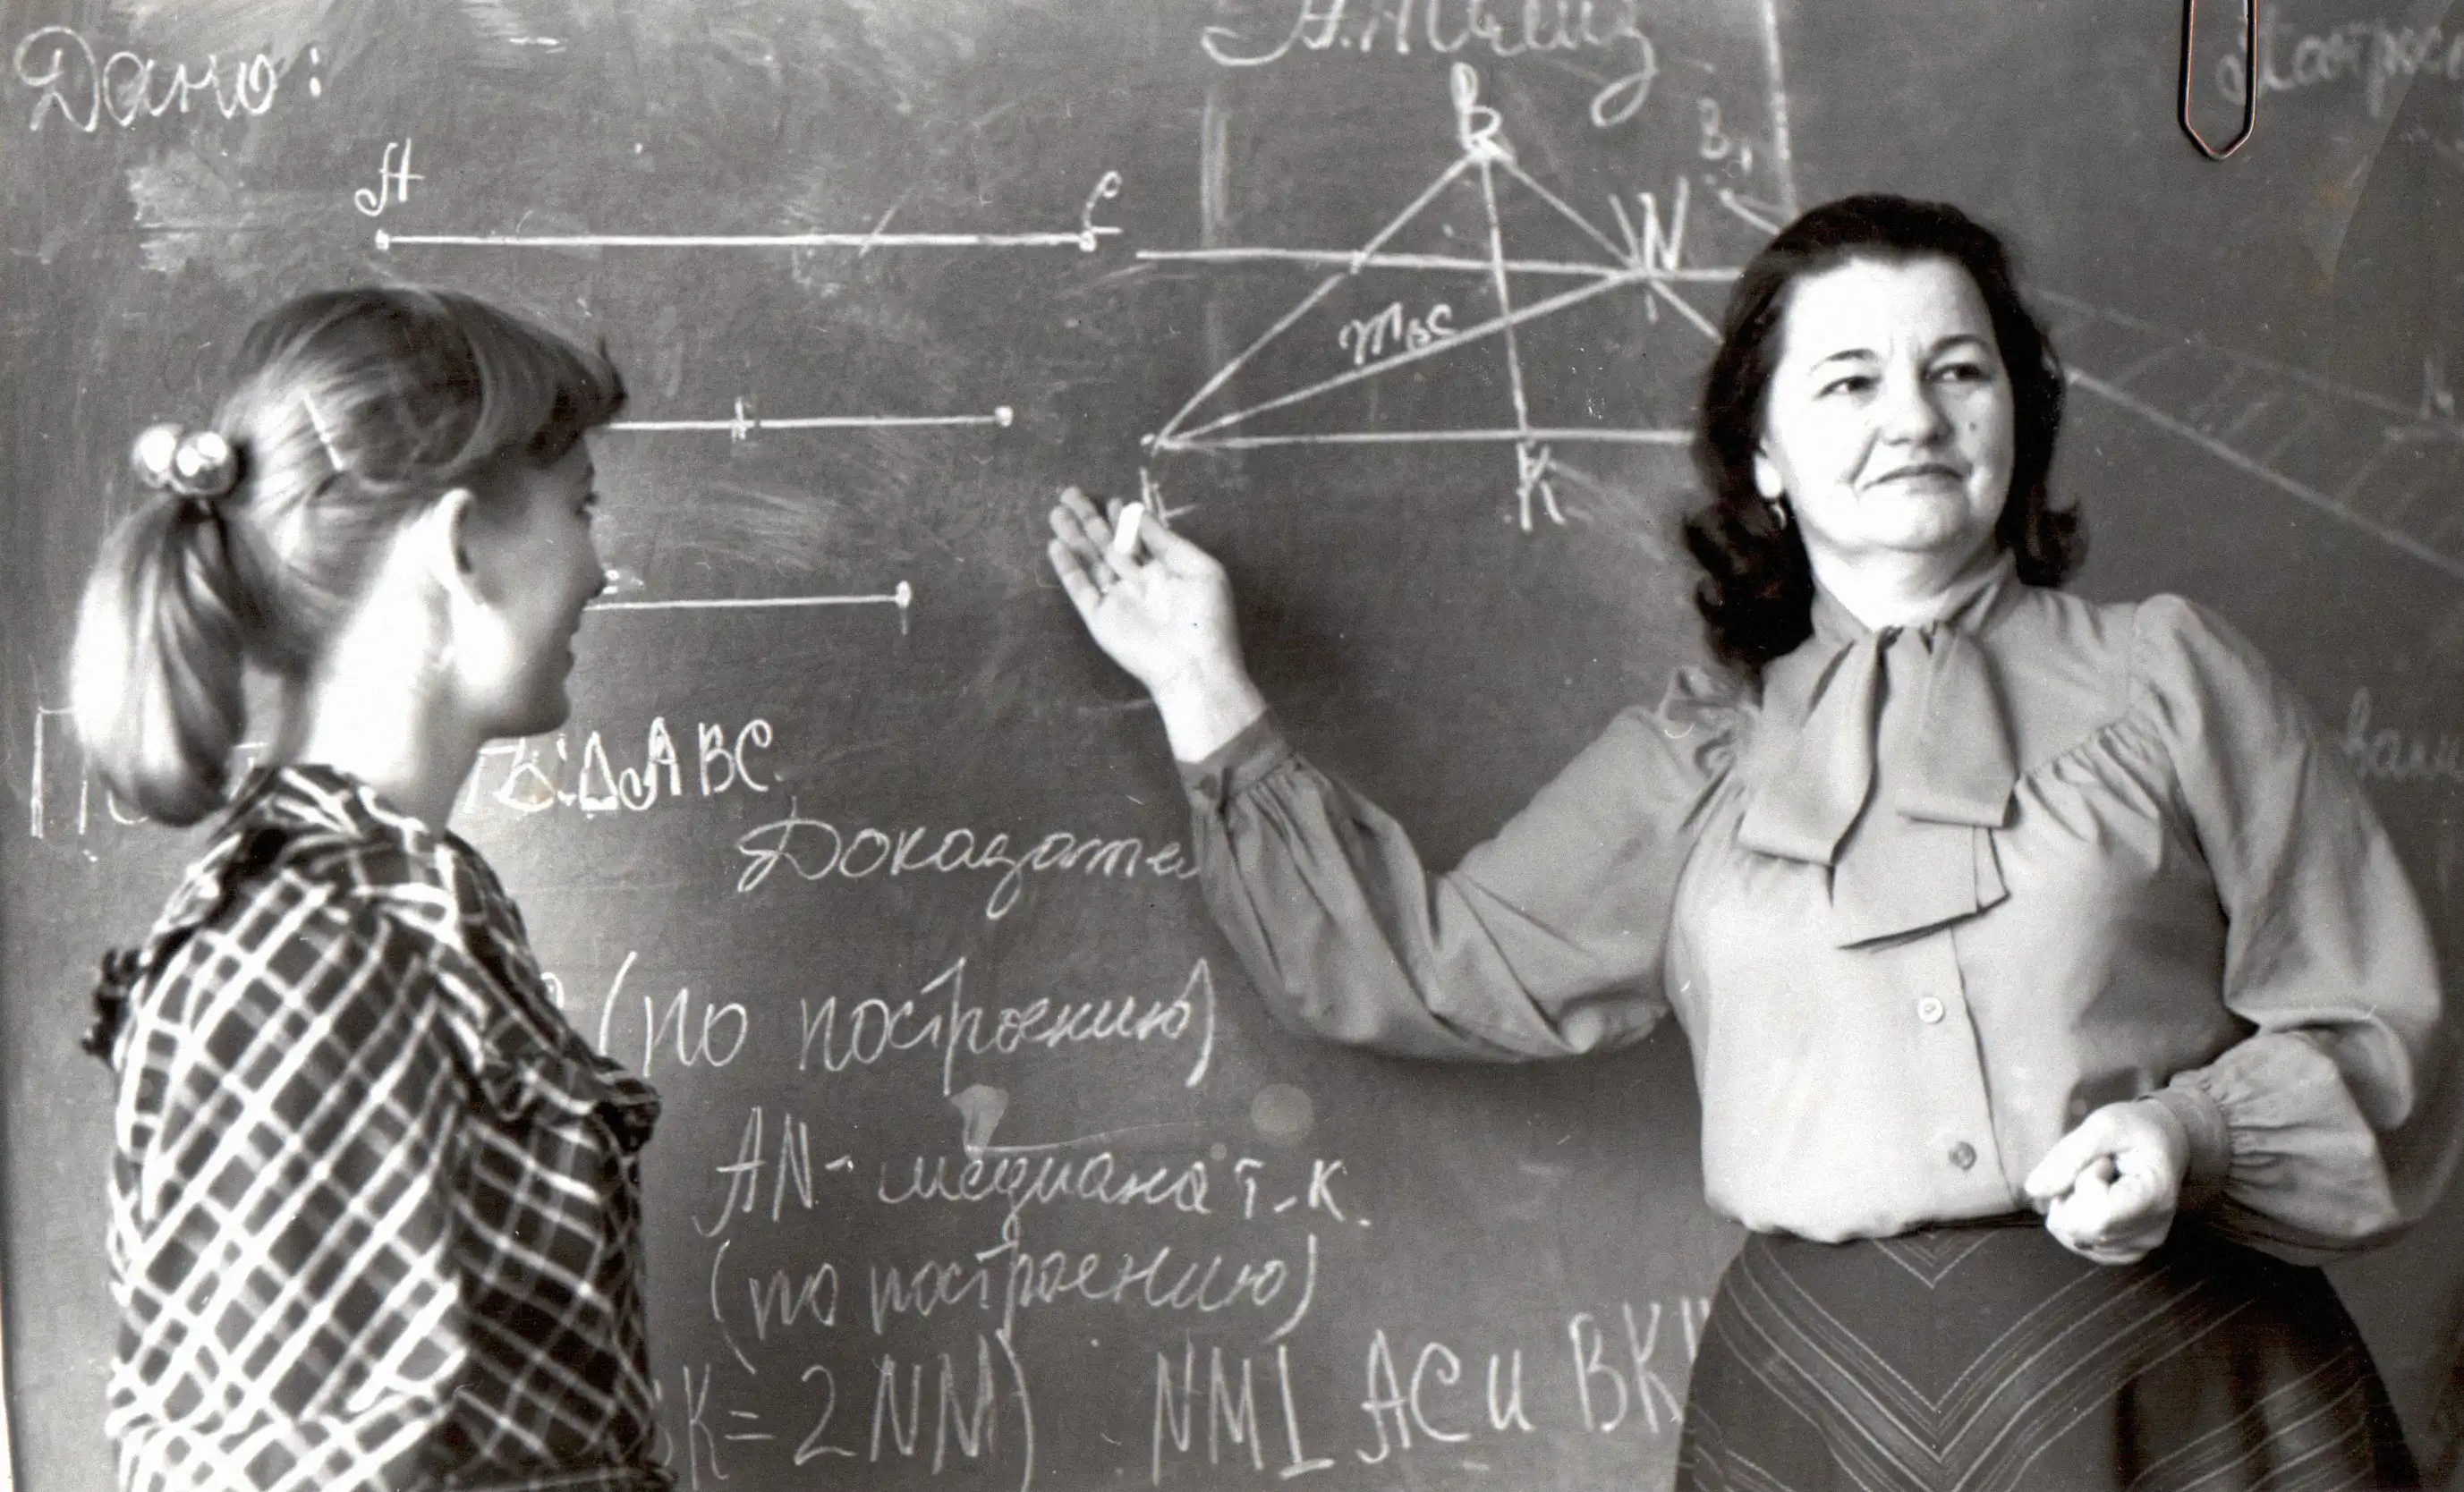 Дано:
А
С
Анализ
B
B₁
N
mвс
K
ΔABC
Доказате
(по построению)
AN - медиана т.к.
(по построению)
K = 2NM) NM⊥AC и BK